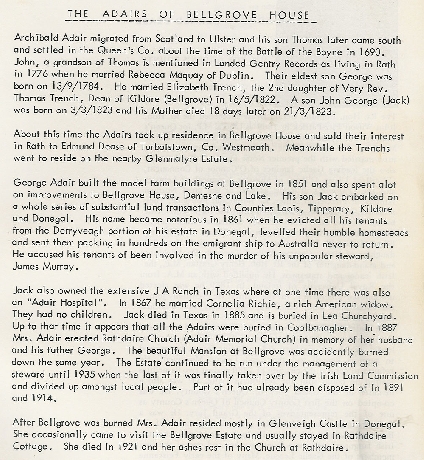 THE ADAIRS OF BELLGROVE HOUSE
Archibald Adair migrated from Scotland to Ulster and his son Thomas later came south
and settled in the Queen's Co. about the time of the Battle of the Boyne in 1690.
John, a grandson of Thomas is mentioned in Landed Gentry Records as living in Rath
in 1776 when he married Rebecca Maquay of Dublin. Their eldest son George was
born on 13/9/1784. He married Elizabeth Trench, the 2nd daughter of Very Rev.
Thomas Trench, Dean of Kildare (Bellgrove) in 16/5/1822. A son John George (Jack)
was born on 3/3/1823 and his Mother died 18 days later on 21/3/1823.
About this time the Adairs took up residence in Bellgrove House and sold their interest
in Rath to Edmund Dease of Turbotstown, Co. Westmeath. Meanwhile the Trenchs
went to reside on the nearby Glenmalyre Estate.
George Adair built the model farm buildings at Bellgrove in 1851 and also spent alot
on improvements to Bellgrove House, Demesne and Lake. His son Jack embarked on
a whole series of substantial land transactions in Counties Laois, Tipperary, Kildare
und Donegal. His name became notorious in 1861 when he evicted all his tenants
from the Derryveagh portion of his estate in Donegal, levelled their humble homesteads
and sent them packing in hundreds on the emigrant ship to Australia never to return.
He accused his tenants of been involved in the murder of his unpopular steward,
James Murray.
Jack also owned the extensive J A Ranch in Texas where at one time there was also
an "Adair Hospital". In 1867 he married Cornelia Richie, a rich American widow.
They had no children. Jack died in Texas in 1885 and is buried in Lea Churchyard.
Up to that time it appears that all the Adairs were buried in Coolbanagher. In 1887
Mrs. Adair erected Rathdaire Church (Adair Memorial Church) in memory of her husband
and his father George. The beautiful Mansion at Bellgrove was accidently burned
down the same year. The Estate continued to be run under the management of a
steward until 1935 when the last of it was finally taken over by the Irish Land Commission
and divided up amongst local people. Part of it had already been disposed of in 1891
and 1914.
After Bellgrove was burned Mrs. Adair resided mostly in Glenveigh Castle in Donegal.
She occasionally came to visit the Bellgrove Estate and usually stayed in Rathdaire
Cottage. She died in 1921 and her ashes rest in the Church at Rathdaire.